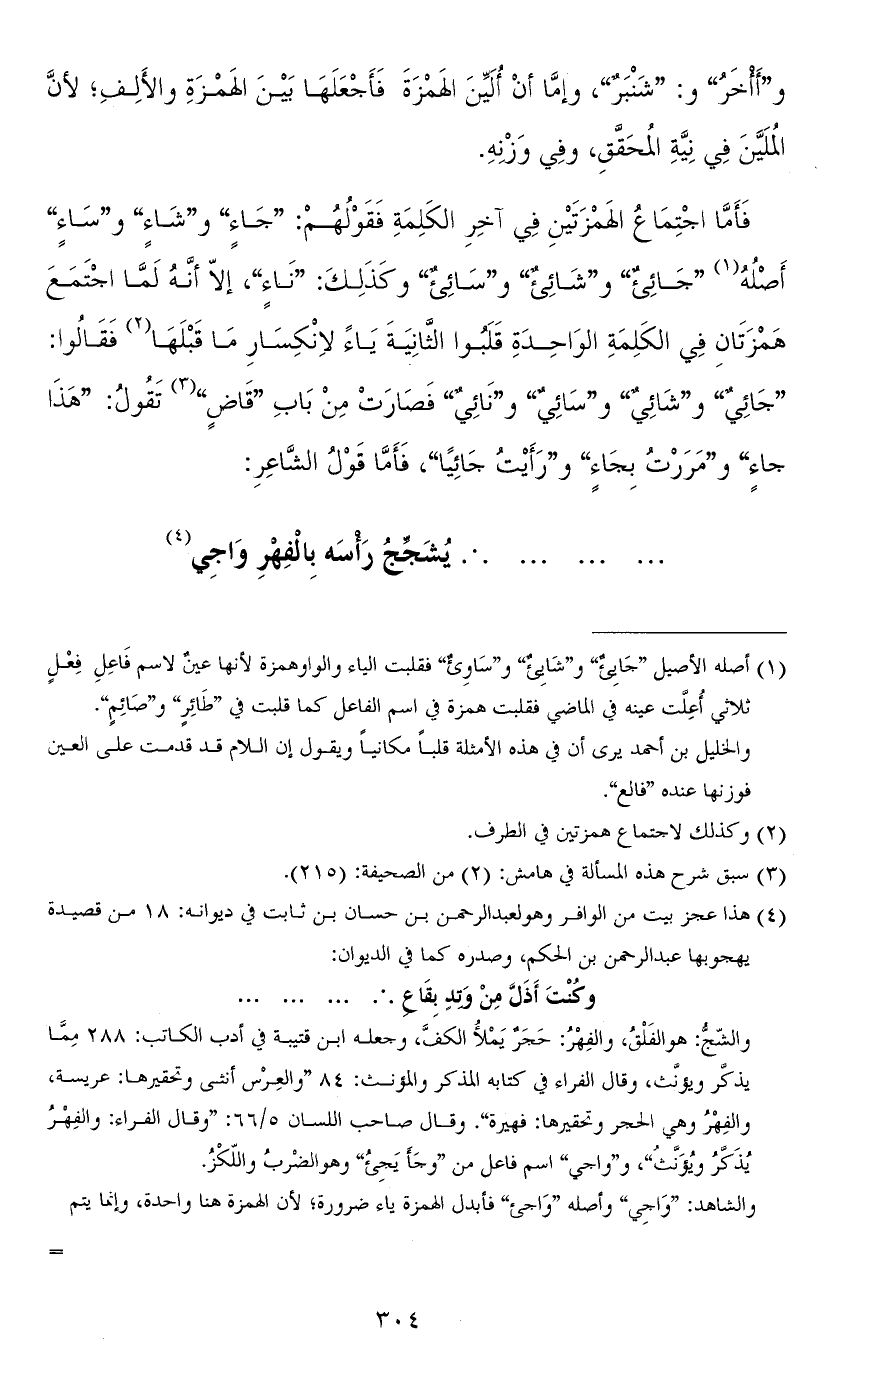 و”أَأْخَرُ“ و: ”شَنْبَرٌ“، وإمَّا أنْ أُلَيِّنَ الهَمْزَةَ فَأَجْعَلَهَا بَيْنَ الهَمْزَةِ والأَلِفِ؛ لأنَّ
المُلَيَّنَ فِي نِيَّةِ المُحَقَّقِ، وفِي وَزْنِهِ.
فَأَمَّا اجْتِمَاعُ الهَمْزَتَيْنِ فِي آخِرِ الكَلِمَةِ فَقَوْلُهُمْ: ”جَاءٍ“ و”شَاءٍ“ و”سَاءٍ“
أَصْلُهُ(١) ”جَائِئٌ“ و”شَائِئٌ“ و”سَائِئٌ“ وكَذَلِكَ: ”نَاءٍ“، إلاّ أنَّهُ لَمَّا اجْتَمَعَ
هَمْزَتَانِ فِي الكَلِمَةِ الوَاحِدَةِ قَلَبُوا الثَّانِيَةَ يَاءً لاِنْكِسَارِ مَا قَبْلَهَا(٢) فَقَالُوا:
”جَائِيٌ“ و”شَائِيٌ“ و”سَائِيٌ“ و”نَائِيٌ“ فَصَارَتْ مِنْ بَابِ ”قَاضٍ“(٣) تَقُولُ: ”هَذَا
جاءٍ“ و”مَرَرْتُ بِجَاءٍ“ و”رَأَيْتُ جَائِيًا“، فَأَمَّا قَوْلُ الشَّاعِرِ:
... ... ... ... .·. يُشَجِّجُ رَأْسَه بِالْفِهْرِ وَاجِي(٤)
(١) أصله الأصيل ”جَايِئٌ“ و”شَايِئٌ“ و”سَاوِئٌ“ فقلبت الياء والواوهمزة لأنها عينٌ لاسم فَاعلِ فِعْلٍ
ثلاثي أُعِلَّت عينه في الماضي فقلبت همزة في اسم الفاعل كما قلبت في ”طَائِرٍ“ و”صَائِمٍ“.
والخليل بن أحمد يرى أن في هذه الأمثلة قلباً مكانياً ويقول إن اللام قد قدمت على العين
فوزنها عنده ”فالع“.
(٢) وكذلك لاجتماع همزتين في الطرف.
(٣) سبق شرح هذه المسألة في هامش: (٢) من الصحيفة: (٢١٥).
(٤) هذا عجز بيت من الوافر وهولعبدالرحمن بن حسان بن ثابت في ديوانه: ١٨ من قصيدة
يهجوبها عبدالرحمن بن الحكم، وصدره كما في الديوان:
وكُنْتَ أَذَلَّ مِنْ وَتِدٍ بِقَاعٍ .·. ... ... ...
والشّجُّ: هوالفَلْقُ، والفِهْرُ: حَجَرٌ يَمْلأُ الكفَّ، وجعله ابن قتيبة في أدب الكاتب: ٢٨٨ مِمَّا
يذكَّر ويؤنَّث، وقال الفراء في كتابه المذكر والمؤنث: ٨٤ ”والعِرْس أنثى وتحقيرها: عريسة،
والفِهْرُ وهي الحجر وتحقيرها: فهيرة“. وقال صاحب اللسان ٦٦/٥: ”وقال الفراء: والفِهْرُ
يُذَكَّرُ ويُؤَنَّثُ“، و”واجي“ اسم فاعل من ”وجَأَ يَجِئُ“ وهوالضربُ واللّكْزُ.
والشاهد: ”وَاجِي“ وأصله ”وَاجئ“ فأبدل الهمزة ياء ضرورة؛ لأن الهمزة هنا واحدة، وإنما يتم
=
٣٠٤